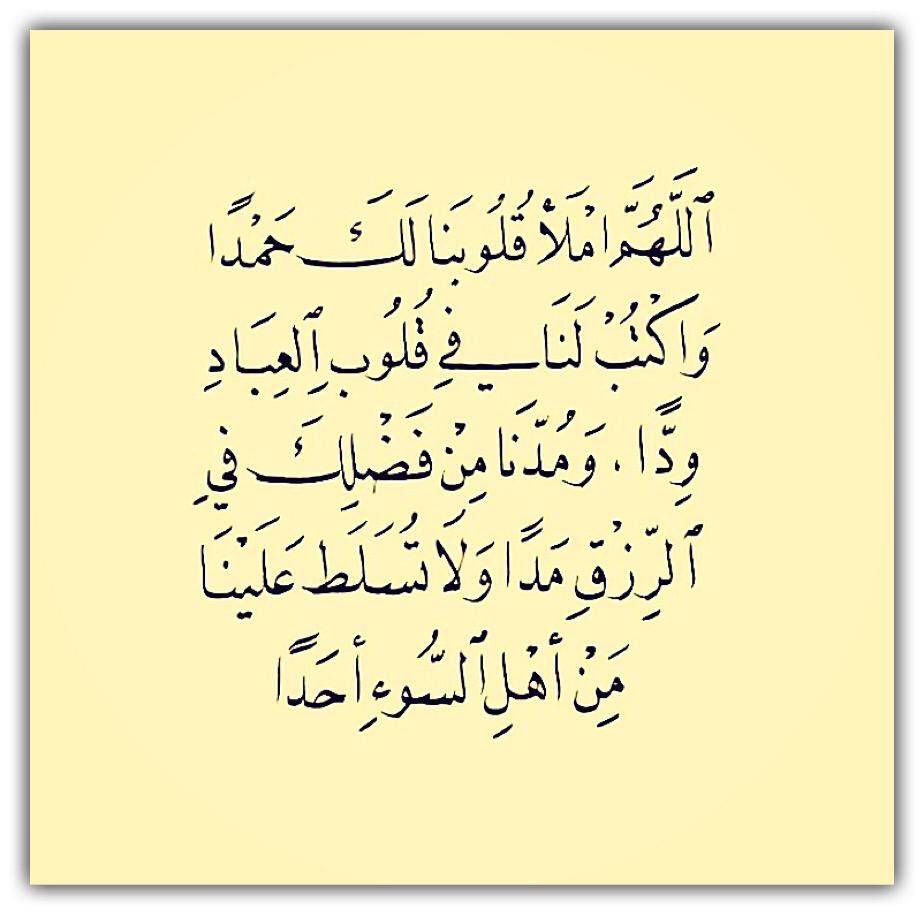 ٱللَّهُمَّ امْلَأْ قُلُوبَنَا لَكَ حَمْدًا
وَاكْتُبْ لَنَا فِي قُلُوبِ ٱلْعِبَادِ
وِدًّا ، وَمُدَّنَا مِنْ فَضْلِكَ فِي
ٱلرِّزْقِ مَدًا وَلَا تُسَلَط عَلَيْنَا
مَِنْ أَهْلِ ٱلسُّوءِ أَحَدًا